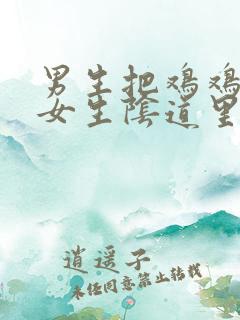 男生把鸡鸡
女生陰道里
逍遥子
未经同意禁止转载